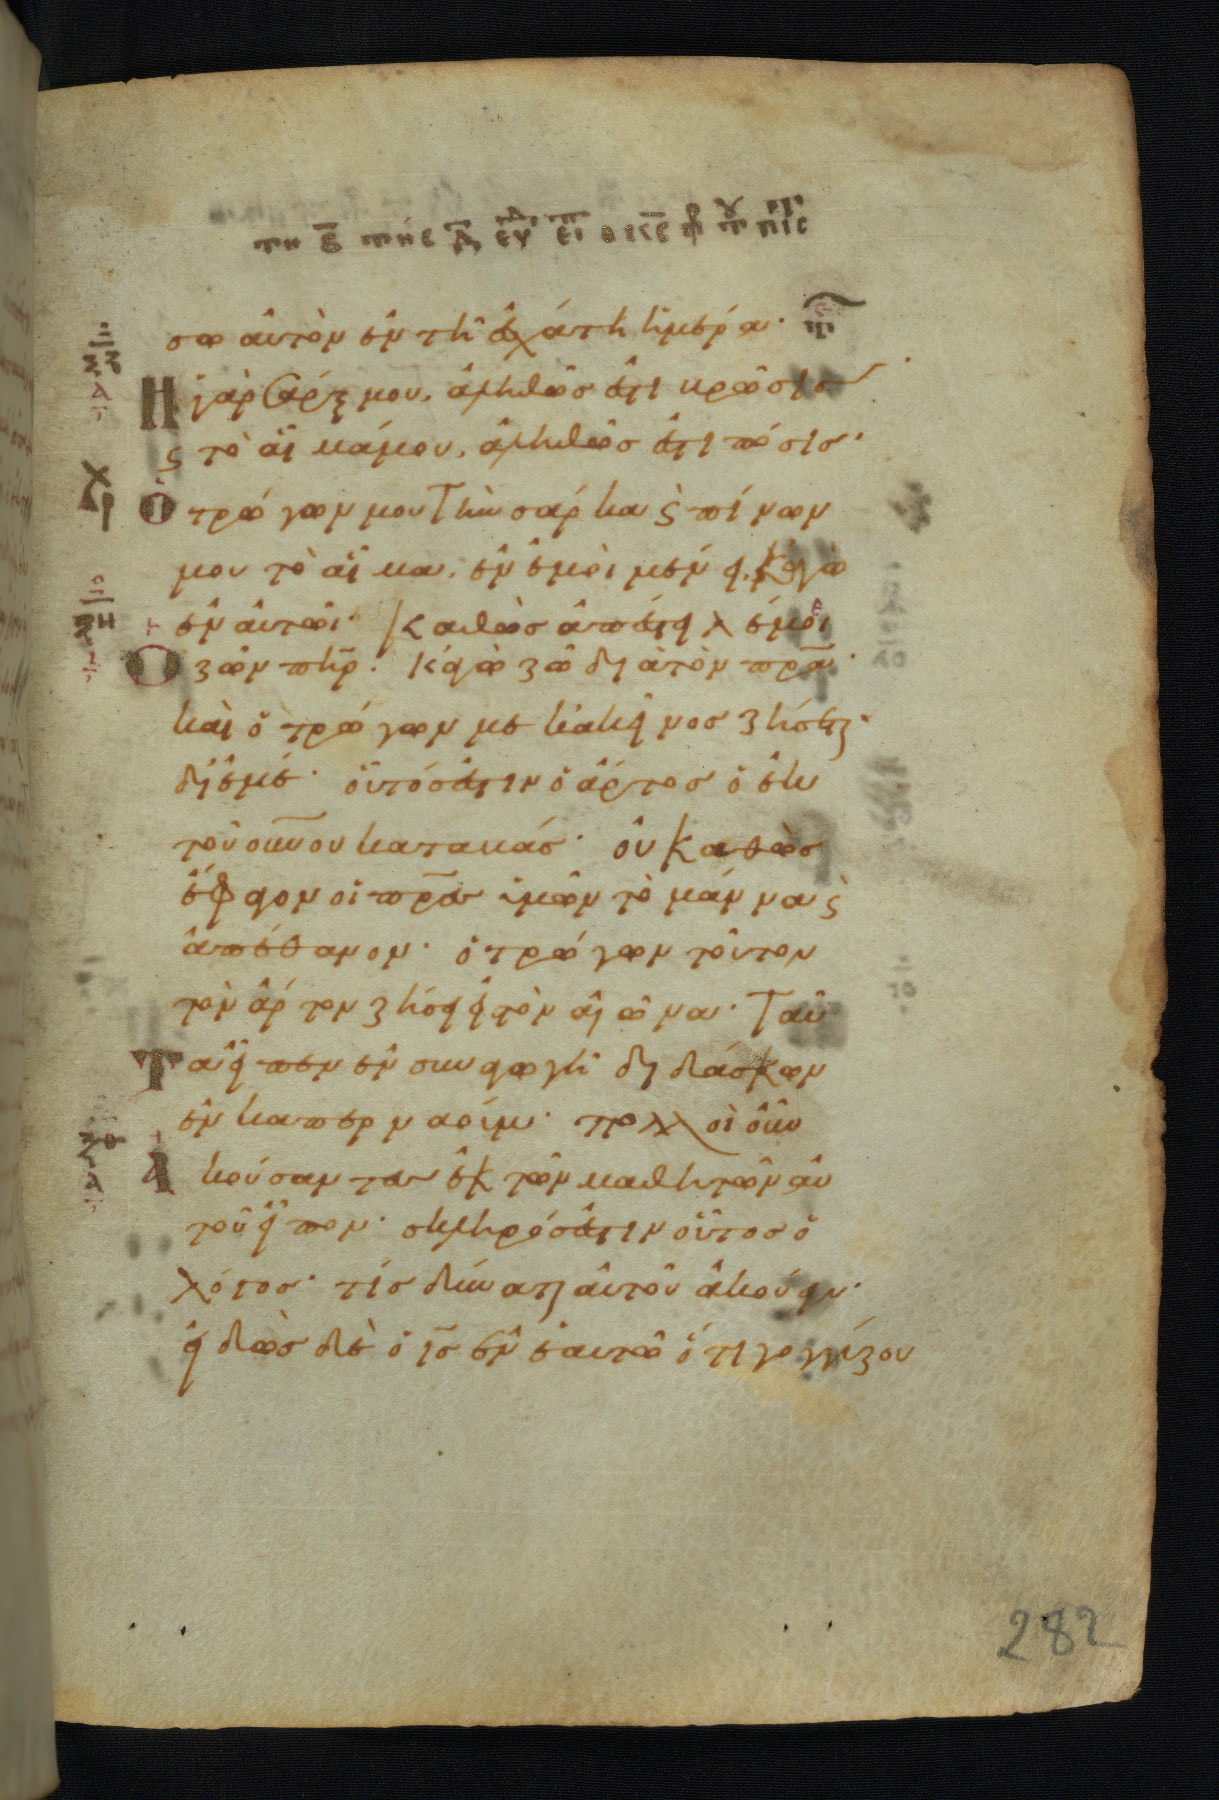 τη β της δ ευ ει ο κς
σω αὐτὸν ἐν τῆ ἐσχάτη ἡμέρα·
Η γὰρ σάρξ μου, ἀληθῶς ἐστι βρῶσισ
ϛ τὸ αἷμά μου, ἀληθῶς ἐστι πόσισ·
Ο τρώγων μου τὴν σάρκα ϛ πίνων
μου τὸ αἷμα, ἐν ἐμοὶ μένει, κἀγὼ
ἐν αὐτῶι· Καθὼσ ἀπέστειλέ με
Ο ζῶν πηρ· κἀγὼ ζῶ διὰ τὸν πρα·
καὶ ὁ τρώγων με κἀκεῖνοσ ζήσεται
δι' ἐμέ· οὗτόσ ἐστιν ὁ ἄρτοσ ὁ ἐκ
τοῦ οὐνου καταβάσ· οὐ καθὼσ
ἔφαγον οἱ πρεσ ἡμῶν τὸ μάννα ϛ
ἀπέθανον· ὁ τρώγων τοῦτον
τὸν ἄρτον ζήσει εἰσ τὸν αἰῶνα· Ταῦ
Τα εἶπεν ἐν συναγωγῆ διδάσκων
ἐν καπερναούμ· πολλοὶ οὖν
Ακούσαντεσ ἐκ τῶν μαθητῶν αὐ
τοῦ εἶπον· σκληρόσ ἐστιν οὗτοσ ὁ
λόγοσ· τίσ δύναται αὐτοῦ ἀκούειν·
εἰδὼσ δὲ ὁ ισ ἐν ἑαυτῶ ὅτι γογγύζου
282